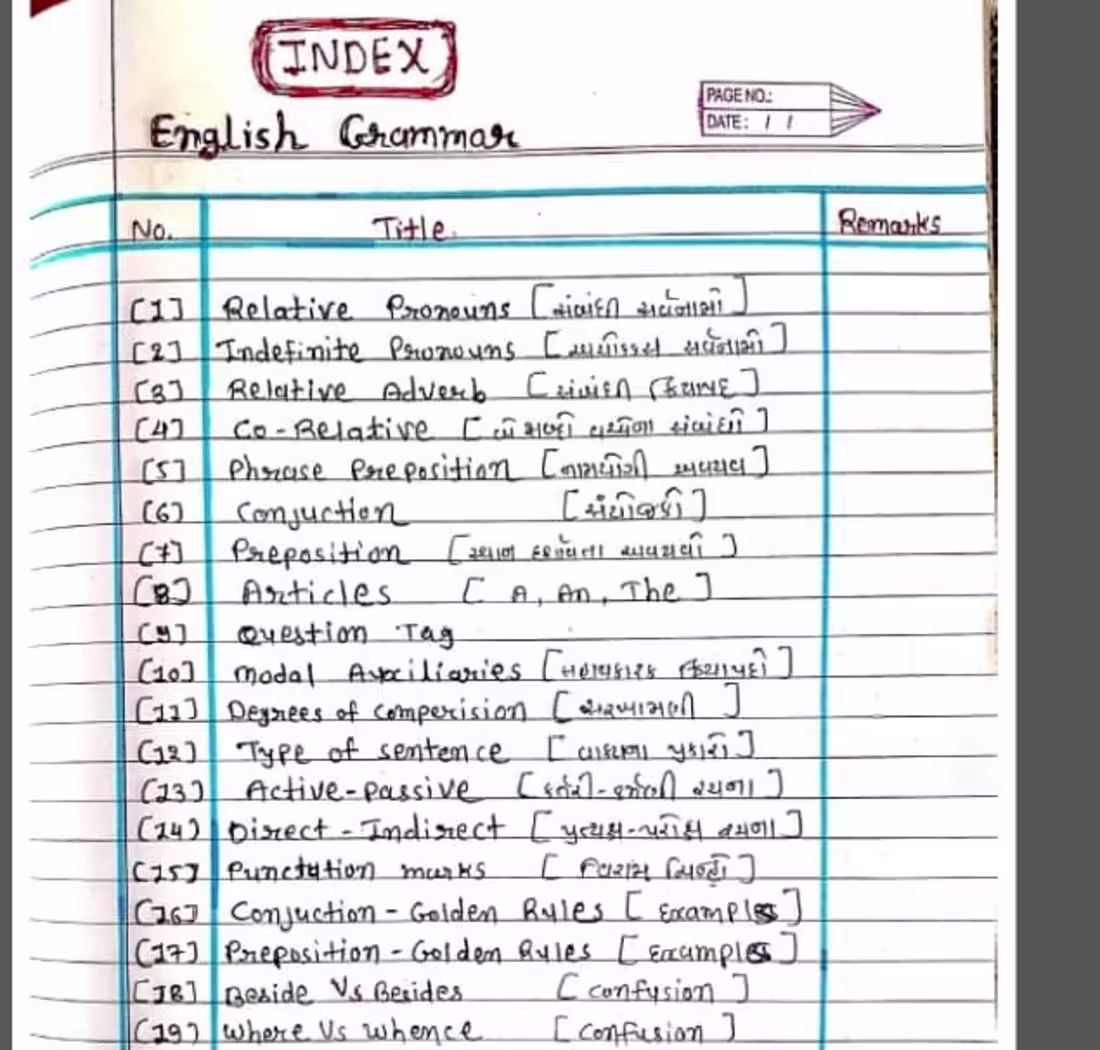 INDEX
PAGE NO.:
DATE: / /
English Grammar
No. Title. Remarks
[1] Relative Pronouns [સંબંધી સર્વનામો]
[2] Indefinite Pronouns [અનિશ્ચિત સર્વનામો]
[3] Relative Adverb [સંબંધી ક્રિયાપદ]
[4] Co-Relative [બે શબ્દો વચ્ચેના સંબંધો]
[5] Phrase Preposition [નામયોગી અવ્યય]
[6] Conjuction [સંયોજકો]
[7] Preposition [સ્થાન દર્શાવતા અવ્યયો]
[8] Articles [A, An, The]
[9] Question Tag
[10] Modal Auxiliaries [સહાયકારક ક્રિયાપદો]
[11] Degrees of comperision [સરખામણી]
[12] Type of sentence [વાક્યના પ્રકારો]
[13] Active-passive [કર્તરી-કર્મણી રચના]
[14] Direct-Indirect [પ્રત્યક્ષ-પરોક્ષ રચના]
[15] Punctution marks [વિરામ ચિહ્નો]
[16] Conjuction-Golden Rules [Examples]
[17] Preposition-Golden Rules [Examples]
[18] Beside Vs Besides [confusion]
[19] Where Vs whence [confusion]